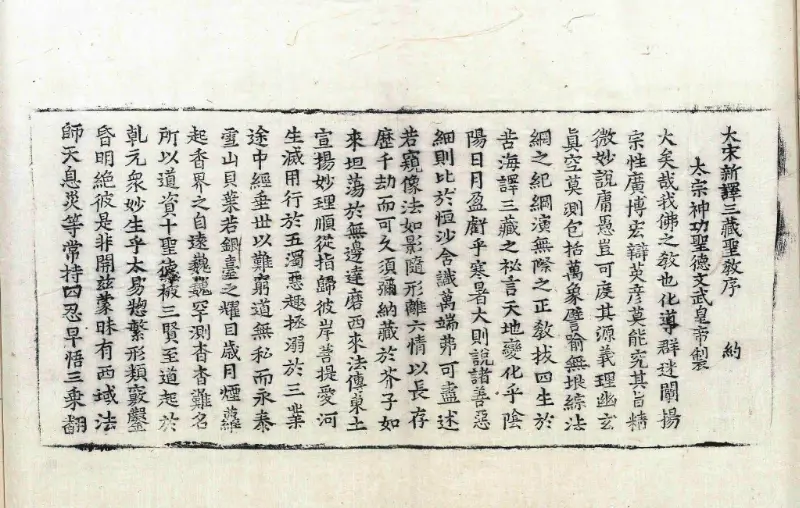 大宋新譯三藏聖敎序　約
太宗神功聖德文武皇帝製
大矣哉我佛之敎也化導群迷闡揚
宗性廣博宏辯英彦莫能究其旨精
微妙說庸愚豈可度其源義理幽玄
眞空莫測包括萬象譬喻無垠綜法
網之紀綱演無際之正敎拔四生於
苦海譯三藏之祕言天地變化乎陰
陽日月盈虧乎寒暑大則說諸善惡
細則比於恒沙含識萬端弗可盡述
若窺像法如影隨形離六情以長存
歷千劫而可久須彌納藏於芥子如
來坦蕩於無邊達磨西來法傳東土
宣揚妙理順從指歸彼岸菩提愛河
生滅用行於五濁惡趣拯溺於三業
途中經垂世以難窮道無私而永泰
雪山貝葉若銀臺之耀目歲月煙蘿
起香界之自遠巍巍罕測杳杳難名
所以道資十聖德被三賢至道起於
乾元衆妙生乎太易惣繁形類竅鑿
昏明絶彼是非開玆蒙昧有西域法
師天息災等常持四忍早悟三乘翻